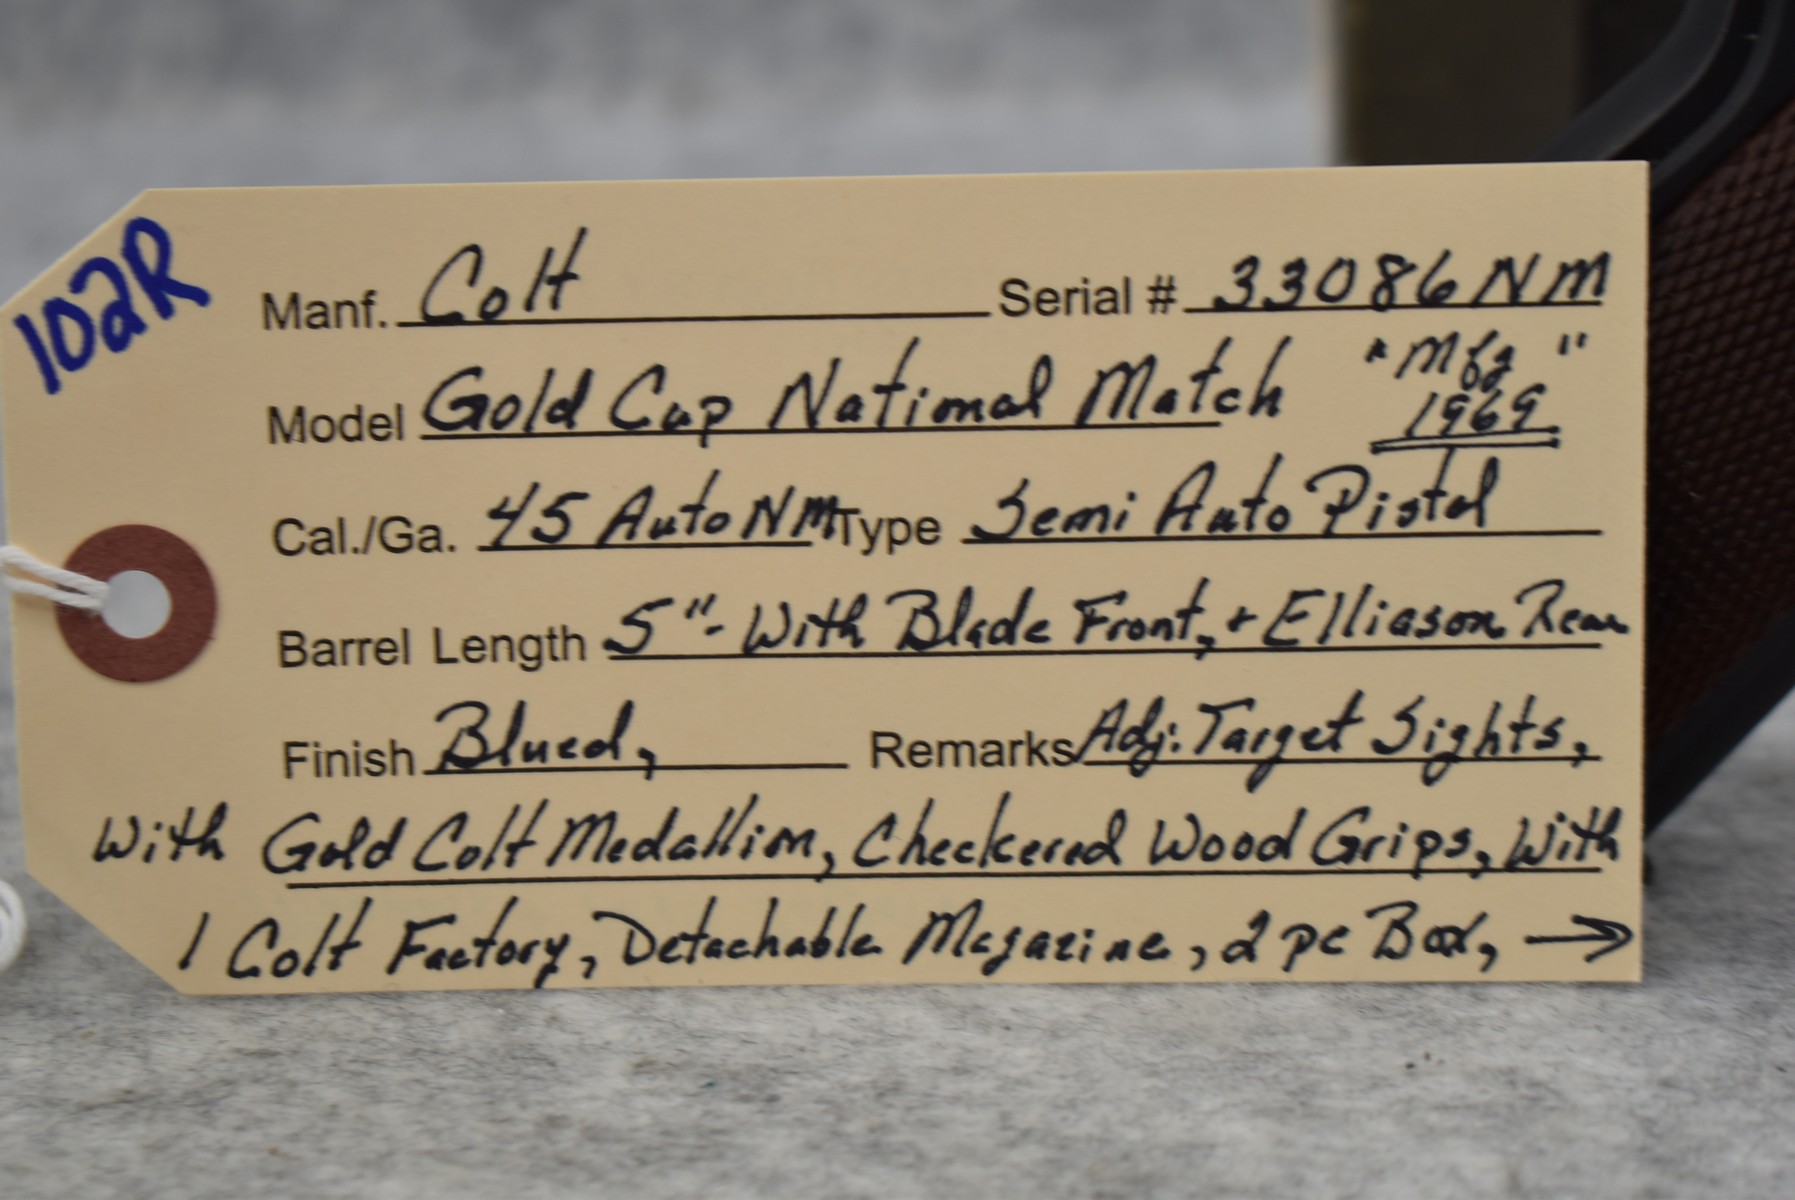 102R
Manf. Colt Serial # 33086NM
Model Gold Cup National Match "Mfg"
1969
Cal./Ga. 45 Auto NM Type Semi Auto Pistol
Barrel Length 5"- With Blade Front, + Elliason Rear
Finish Blued, Remarks Adj. Target Sights,
With Gold Colt Medallion, Checkered Wood Grips, With
1 Colt Factory, Detachable Magazine, 2 pc Box, →